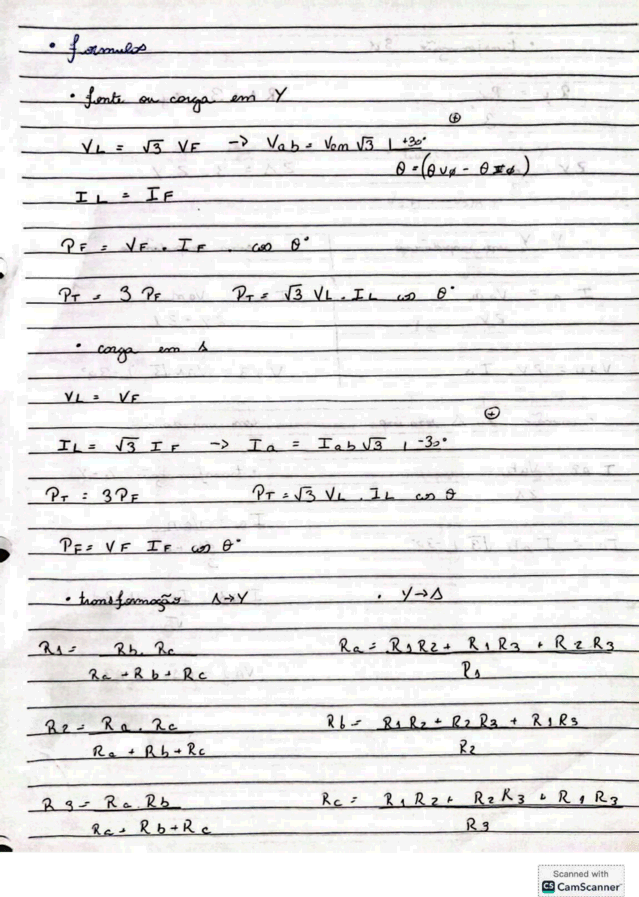 • formulas
• fonte ou carga em Y
⊕
VL = √3 VF -> Vab = Van √3 ∠+30°
θ = (θVø - θIø)
IL = IF
PF = VF . IF . cos θ°
PT = 3 PF PT = √3 VL . IL cos θ°
• carga em Δ
VL = VF
⊕
IL = √3 IF -> Ia = Iab √3 ∠-30°
PT = 3PF PT = √3 VL . IL cos θ
PF = VF IF cos θ°
• transformação Δ→Y • Y→Δ
R1 = Rb. Rc / Ra + Rb + Rc Ra = R1R2 + R1R3 + R2R3 / R1
R2 = Ra . Rc / Ra + Rb + Rc Rb = R1R2 + R2R3 + R1R3 / R2
R3 = Ra. Rb / Ra + Rb + Rc Rc = R1R2 + R2R3 + R1R3 / R3
Scanned with
CS CamScanner